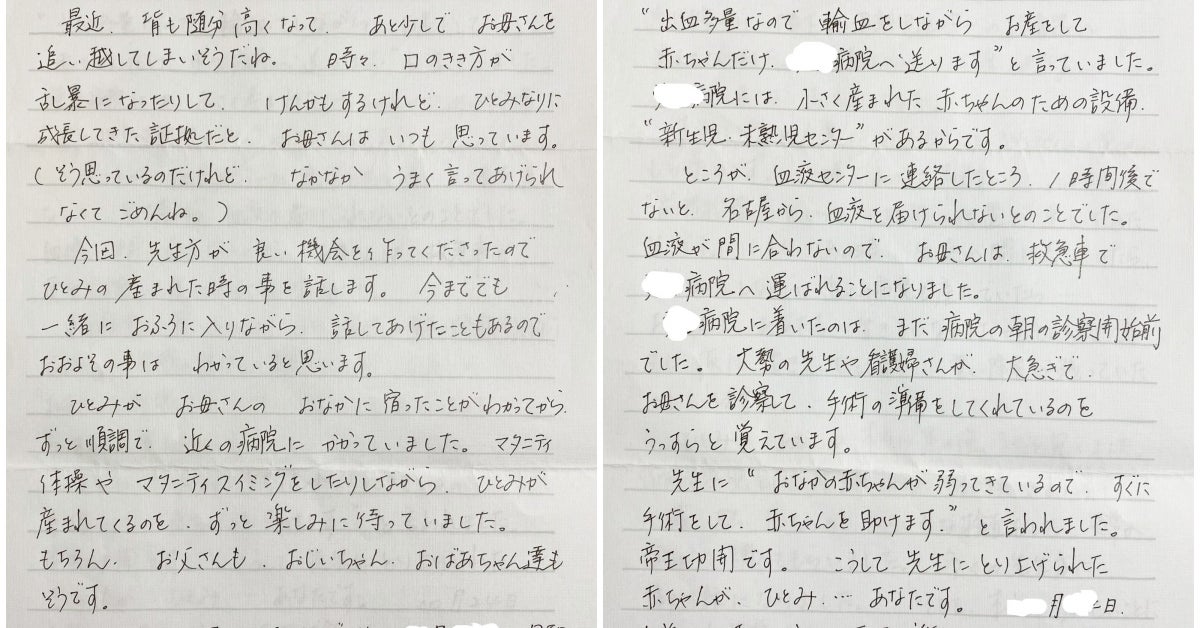 最近、背も随分高くなって、あと少しで お母さんを
追い越してしまいそうだね。 時々、口のきき方が
乱暴になったりして、けんかもするけれど、ひとみなりに
成長してきた証拠だと、お母さんは いつも 思っています。
(そう思っているのだけれど、なかなか うまく言ってあげられ
なくて ごめんね。)
今回、先生方が 良い機会を作ってくださったので
ひとみの産まれた時の事を話します。 今まででも
一緒に おふろに入りながら、話してあげたこともあるので
おおよその事は わかっていると思います。
ひとみが お母さんの おなかに宿ったことがわかってから、
ずっと順調で、近くの病院に かかっていました。 マタニティ
体操や マタニティスイミングをしたりしながら、ひとみが
産まれてくるのを、ずっと楽しみに待っていました。
もちろん、お父さんも、おじいちゃん、おばあちゃん達も
そうです。
"出血多量なので 輸血をしながら お産をして
赤ちゃんだけ、 病院へ送ります"と言っていました。
病院には、小さく産まれた 赤ちゃんのための設備、
"新生児・未熟児センター"があるからです。
ところが、血液センターに連絡したところ、1時間後で
ないと、名古屋から、血液を届けられないとのことでした。
血液が間に合わないので、お母さんは、救急車で
病院へ運ばれることになりました。
病院に着いたのは、まだ病院の朝の診察開始前
でした。 大勢の先生や看護婦さんが、大急ぎで、
お母さんを診察して、手術の準備をしてくれているのを
うっすらと覚えています。
先生に "おなかの赤ちゃんが弱ってきているので、すぐに
手術をして、赤ちゃんを助けます。"と言われました。
帝王切開です。 こうして先生にとり上げられた
赤ちゃんが、ひとみ、… あなたです。 月 日、